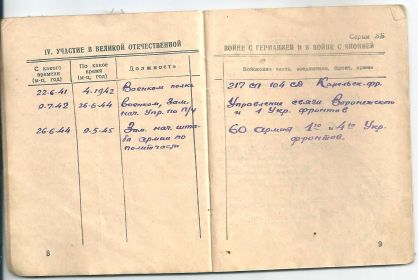 Серия ББ
IV. УЧАСТИЕ В ВЕЛИКОЙ ОТЕЧЕСТВЕННОЙ
ВОЙНЕ С ГЕРМАНИЕЙ И В ВОЙНЕ С ЯПОНИЕЙ
С какого времени (м-ц, год)
По какое время (м-ц, год)
Должность
Войсковая часть, соединение, фронт, армия
22-6-41
4.1942
Военком полка
217 СП 104 СД Карельск. фр.
0.7.42
26-6-44
Военком, Зам.
нач. Упр. по п/ч
Управление связи Воронежского
и 1 Укр. фронтов
26-6-44
9-5-45
Зам. нач. шта-
ба армии по
политчасти
60 армия 1го и 4го Укр.
фронтов.
8
9